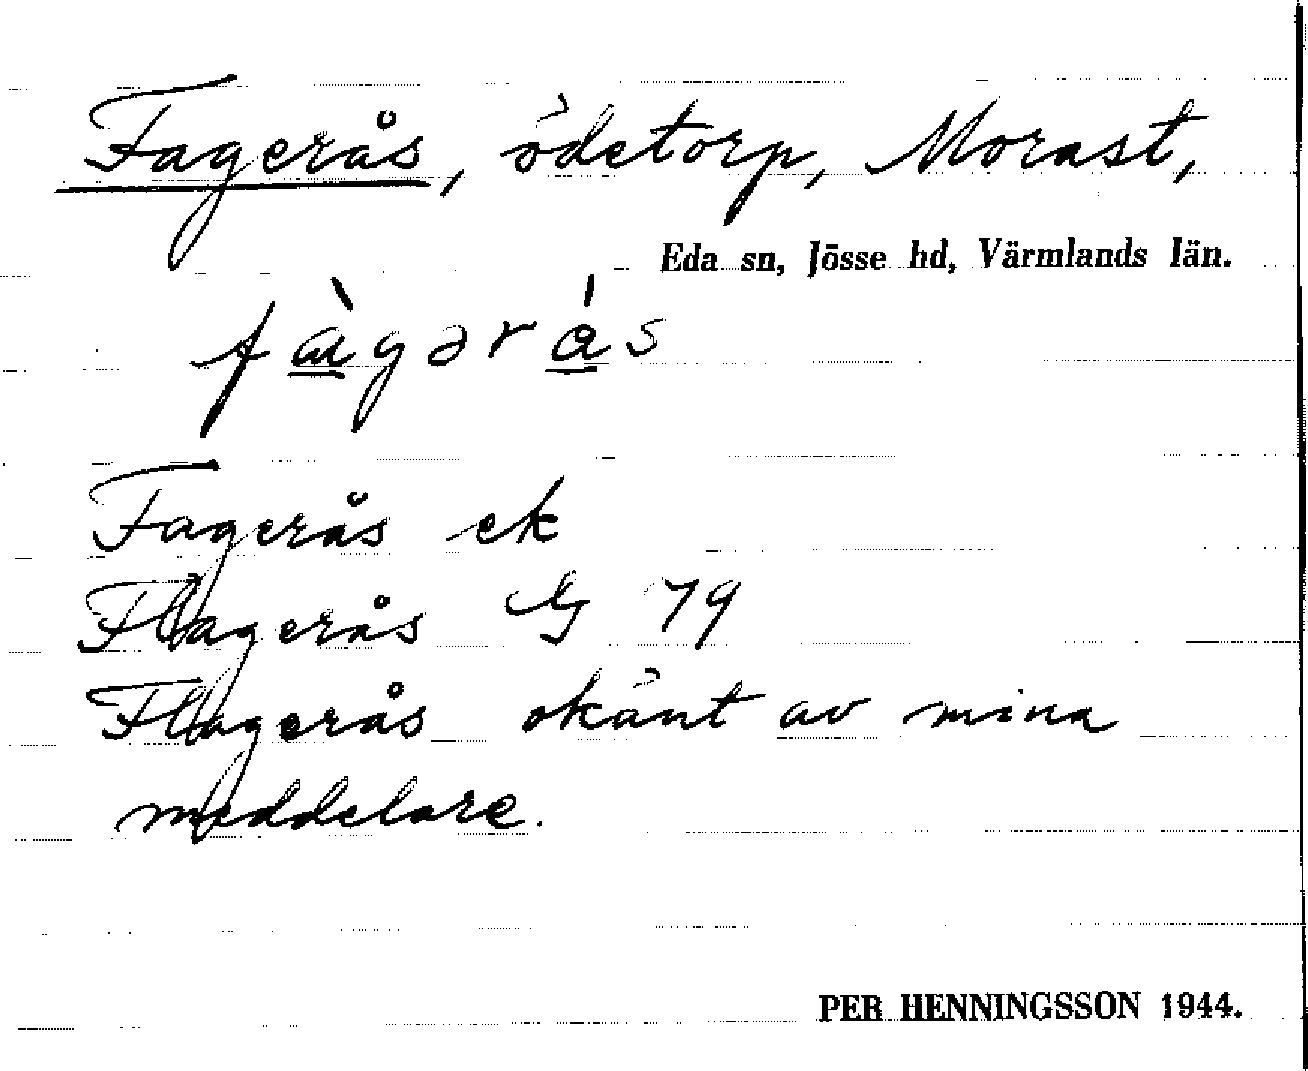 Fagerås, ödetorp, Morast,
Eda sn, Jösse hd, Värmlands län.
fàgərás
Fagerås ek
Flagerås G 79
Flagerås okänt av mina
meddelare.
PER HENNINGSSON 1944.